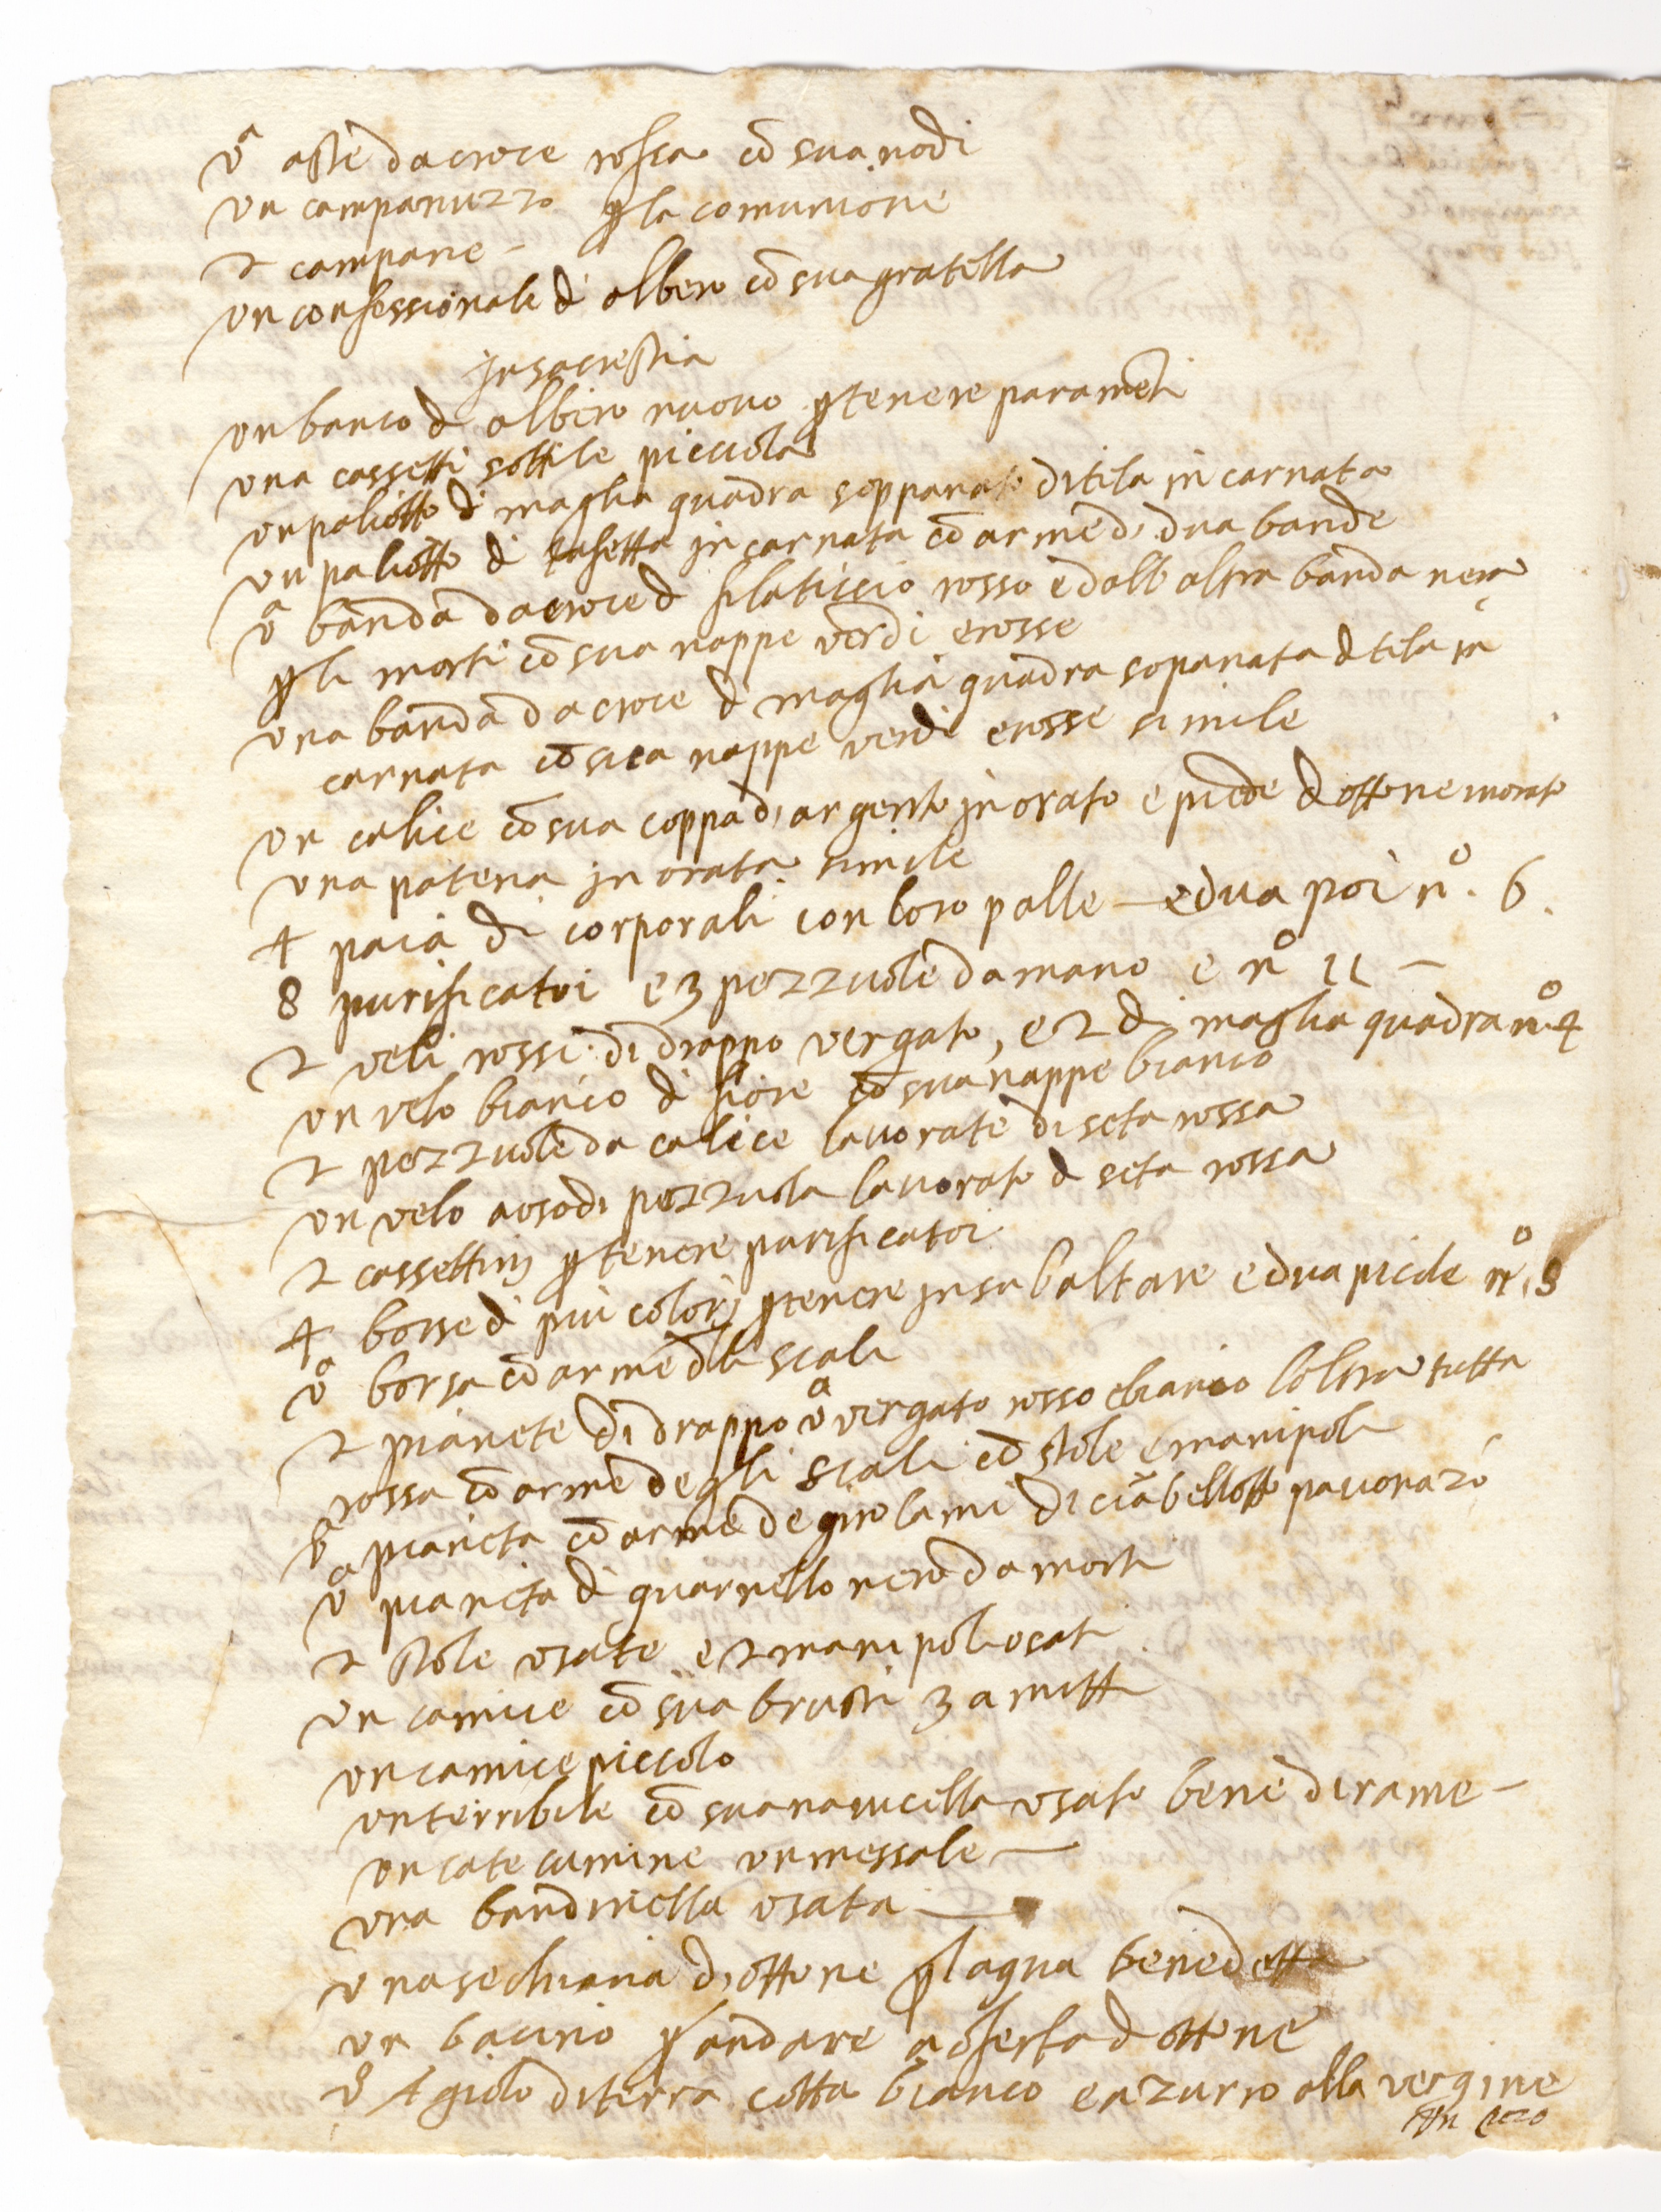 vª aste da croce rossa cō sua nodi
un campanuzzo p la comunione
2 campane -
un confessionale d' albero cō sua gratella
In sacrestia
un banco d albero nuovo p tenere paramēti
una cassetti sottile picciola
un paliotto d maglia quadra soppanato di tela in carnata
un paliotto di tafetta in carnata cō arme di dua bande
vª banda da croce d filaticcio rosso e dall altra banda nera
p li morti cō sua nappe verdi e rosse
una banda da croce d maglia quadra sopanata d tela in
carnata cō sua nappe verdi e rosse simile
un calice cō sua coppa di argento in orato e piede d ottone inorato
una patena in orata simile
4 paia di corporali con loro palle — e dua poi nº. 6.
8 purificatoi e 3 pezzuole da mano e nº 11 —
2 veli rossi di drappo vergato, e 2 di maglia quadra nº 4
un velo bianco d fiore cō sua nappe bianco
2 pezzuole da calice lavorate di seta rossa
un velo a uso di pezzuola lavorato d seta rossa
2 cassettinj p tenere purificatoi
4 borse d piu colorj p tenere in su l altare e dua picile nº. 8
vª borsa cō arme d li scali
2 pianete di drappo vª vergato rosso e bianco l oltra tutta
rossa cō arme degli scali cō stole e manipoli
vª pianeta cō arme de girolami di ciābellotto pavonazo
vª pianeta d guarnello nero da morti
2 stole usate e 2 manipoli usati
un camice cō sua brusti 3 amitti
un camice piccolo
un terribile cō sua navicella usato bene di rame —
un cate cumine un messale —
una bandinella usata —
una sechiana di ottone p l agua benedetta
un bacino p andare a oferta d ottone
vº Agiolo di terra cotta bianco e azurro alla vergine